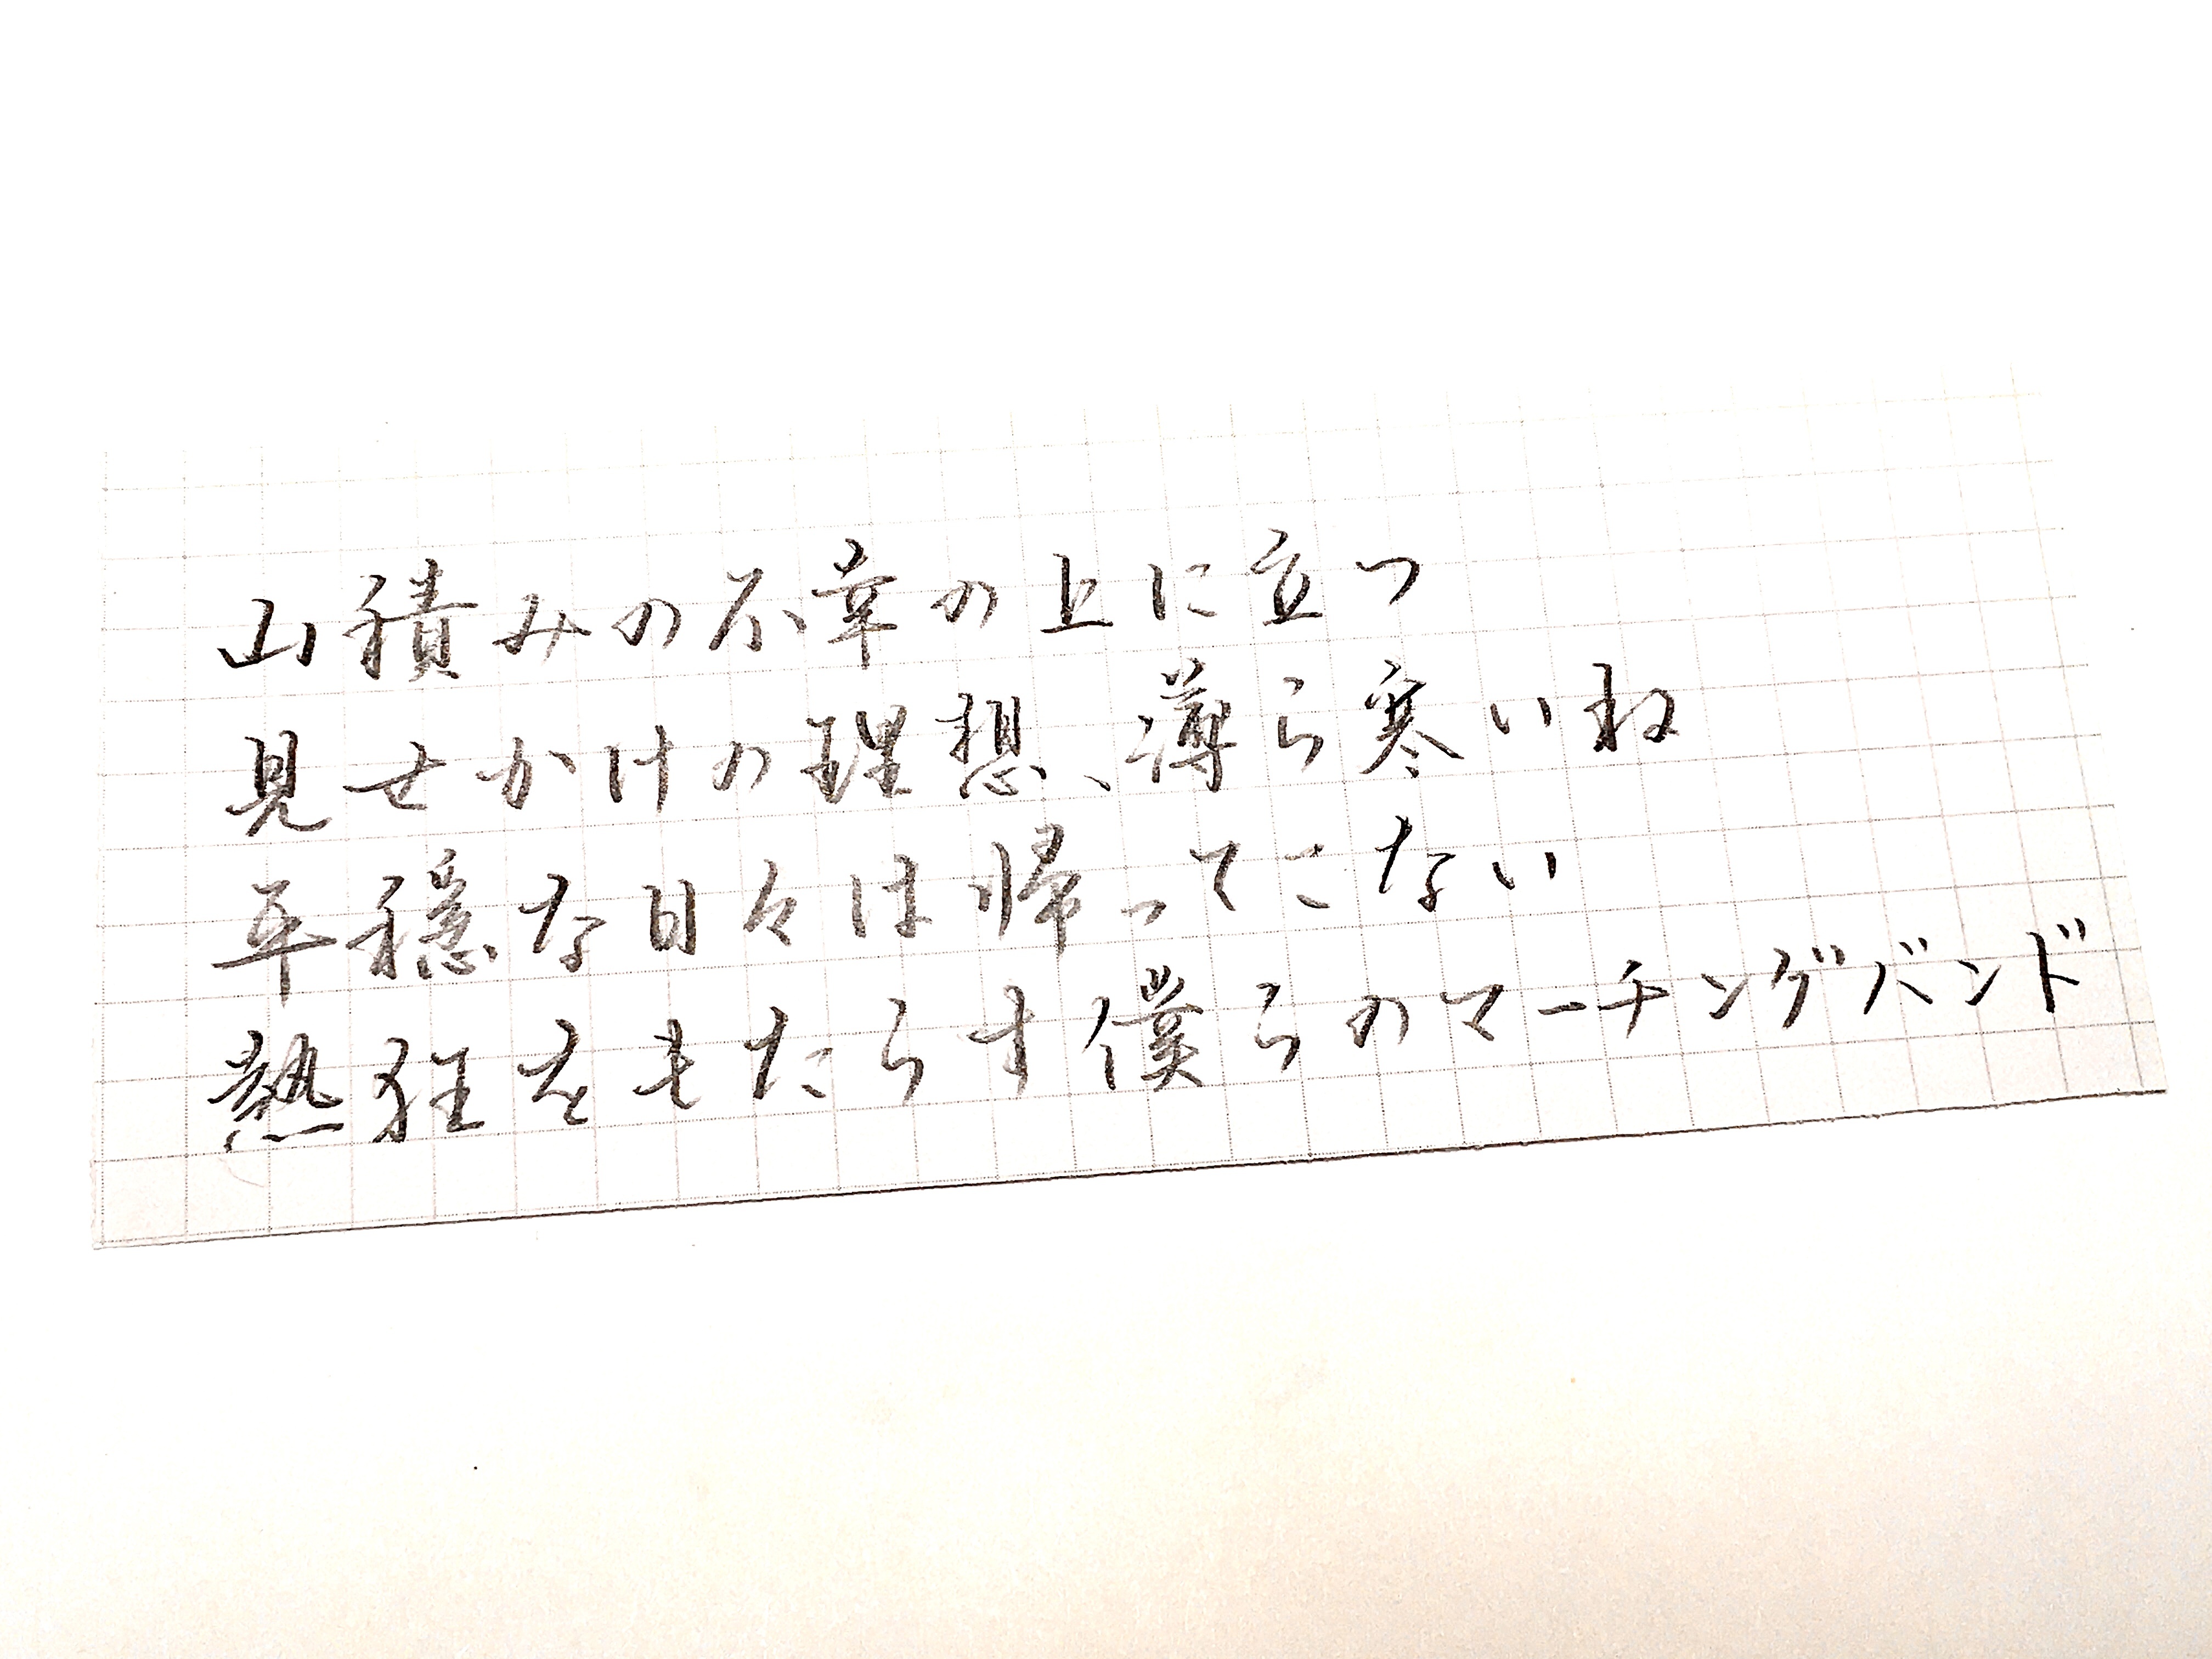 山積みの不幸の上に立つ
見せかけの理想、薄ら寒いね
平穏な日々は帰ってこない
熱狂をもたらす僕らのマーチングバンド